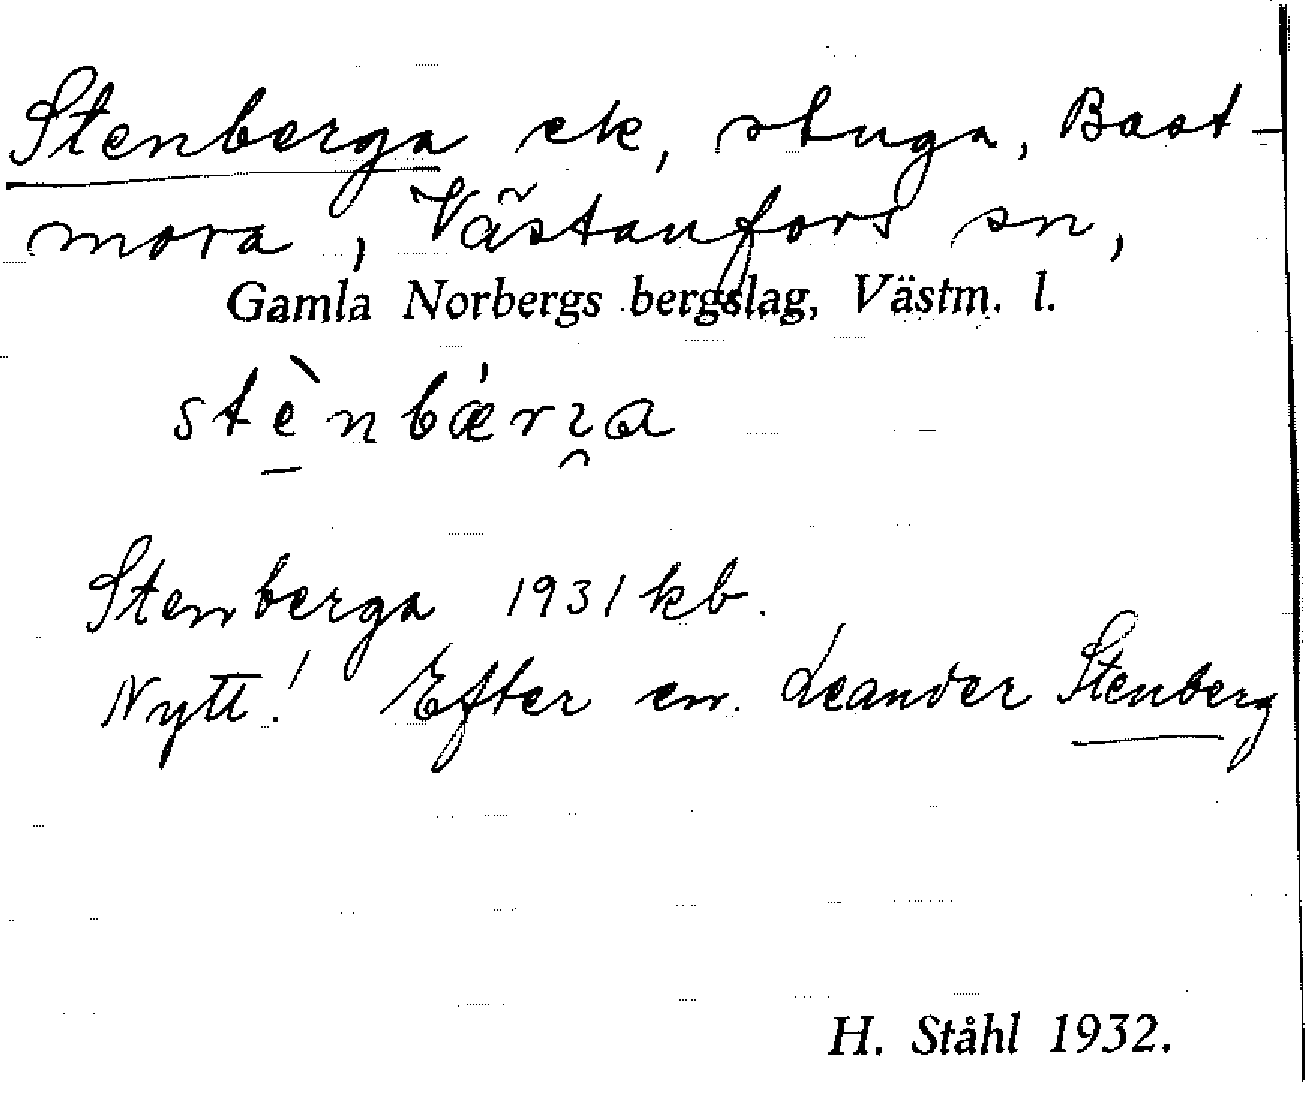 Stenberga ek, stuga, Bast-
mora, Västanfors sn,
Gamla Norbergs bergslag, Västm. l.
stènbǽrı̯a
Stenberga 1931 kb.
Nytt! Efter en. Leander Stenberg
H. Ståhl 1932.